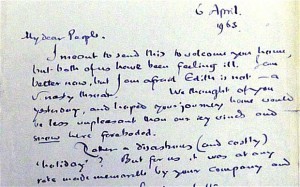 6 April.
1963
My dear People.
I meant to send this to welcome you home,
but both of us have been feeling ill. I am
better now, but I am afraid Edith is not – a
nasty throat. We thought of you
yesterday, and hoped your journey home would
be less unpleasant than our icy winds and
snow here foreboded.
Rather a disastrous (and costly)
'holiday'? But for us it was at any
rate made memorable by your company and